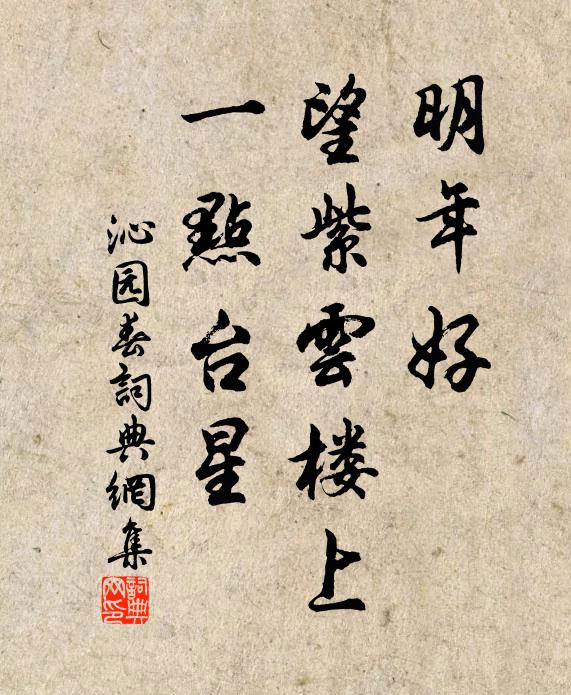 明年好
望紫雲楼上
一點台星
沁园春詞典網集
詞典网印